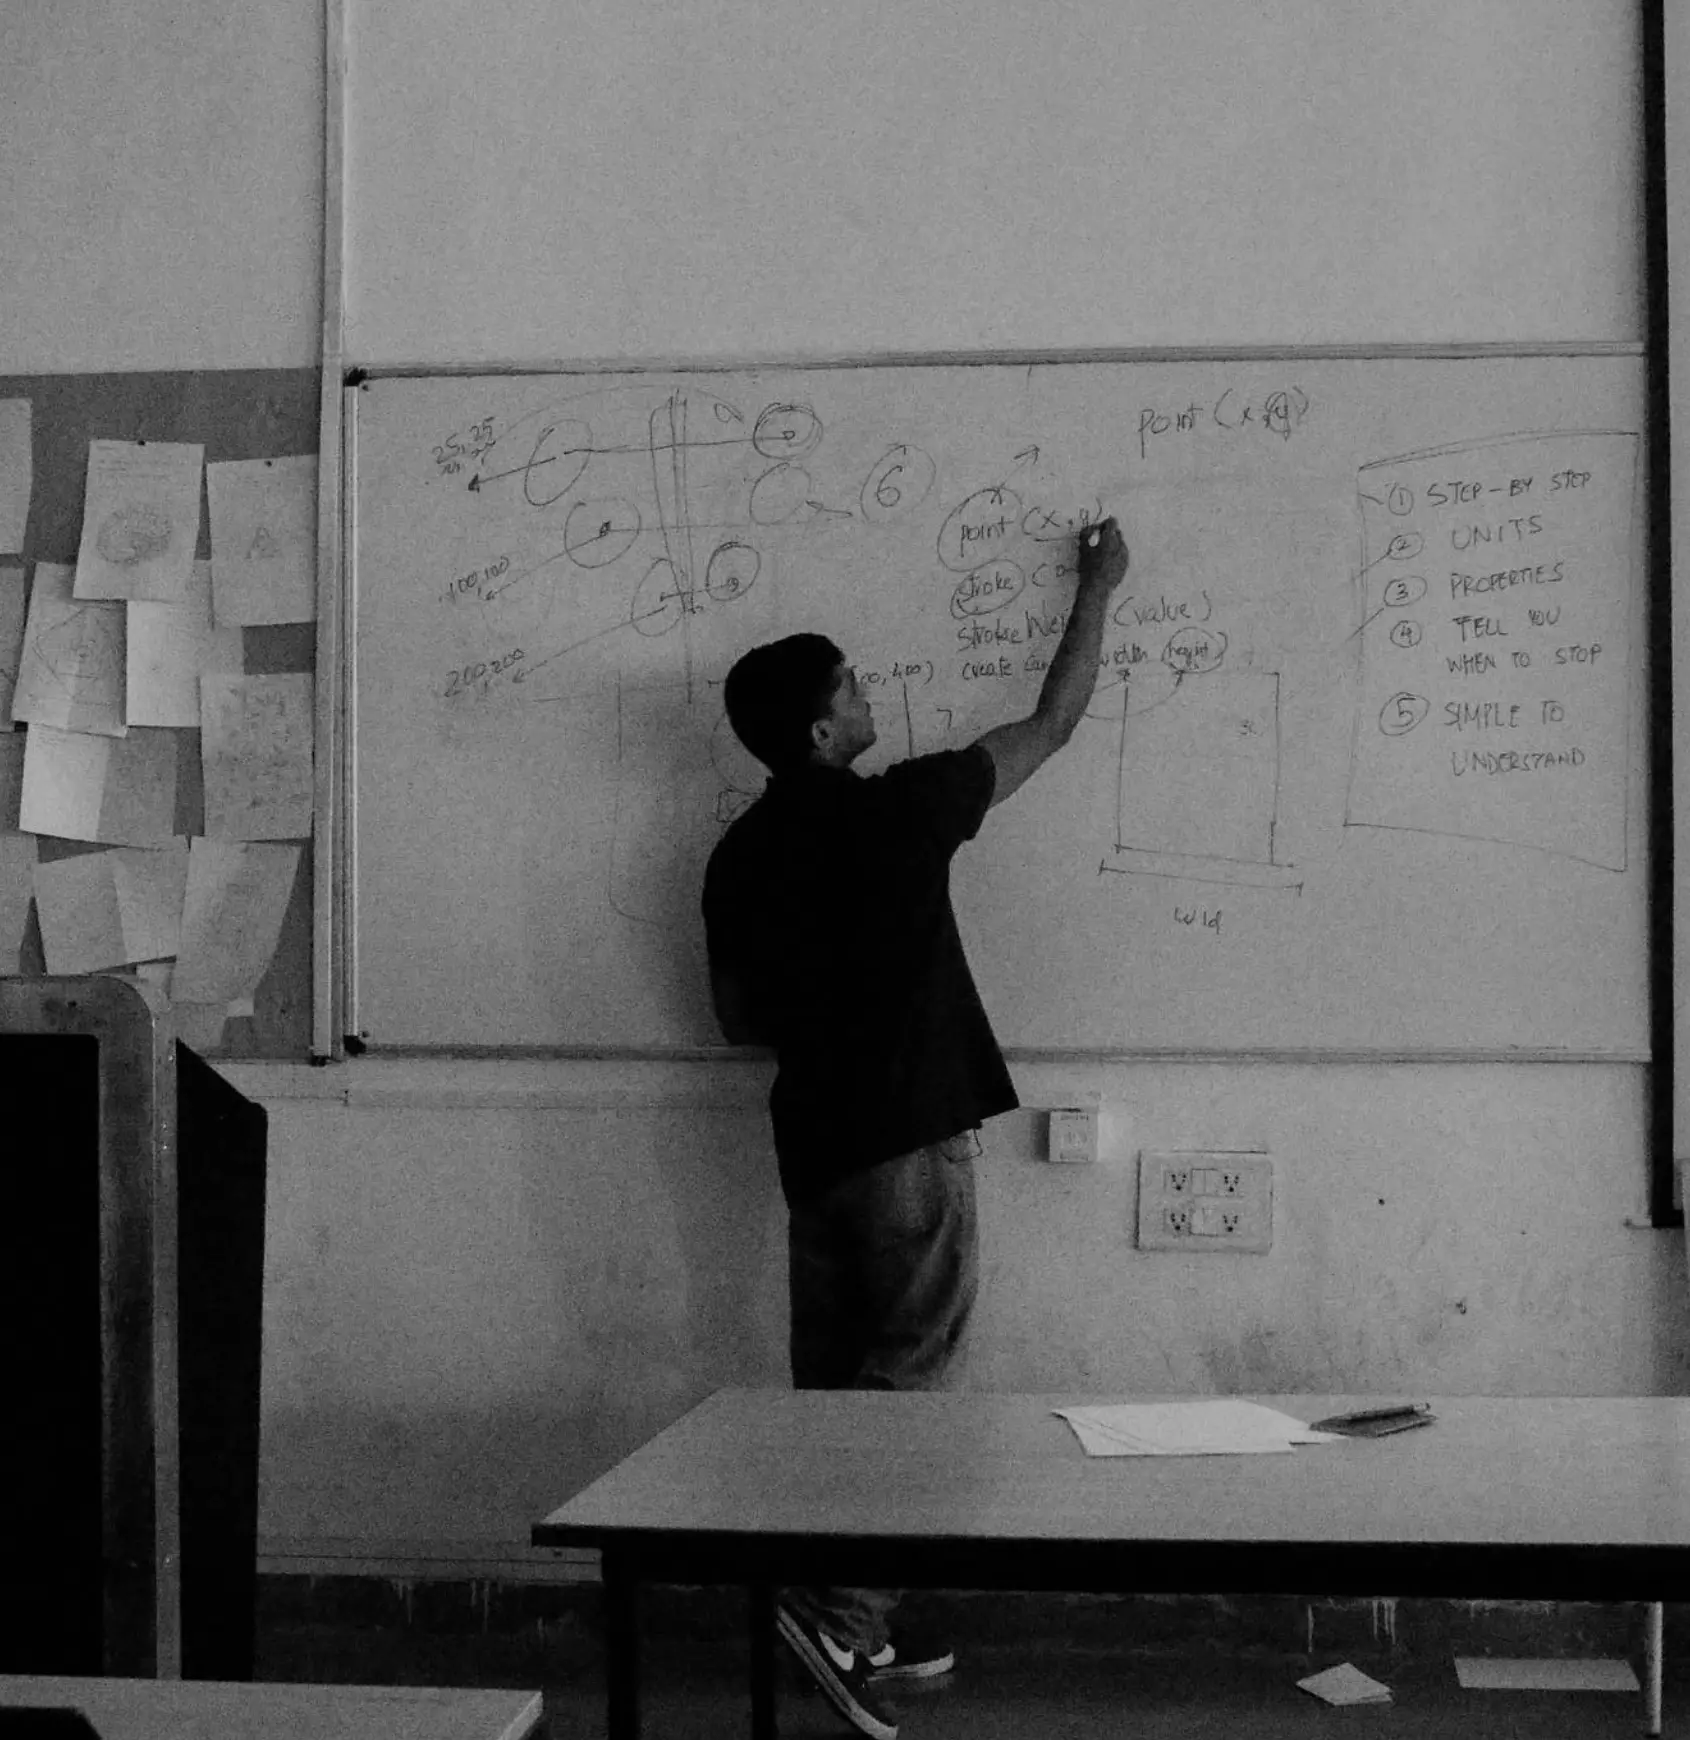 25,25
100,100
200,200
6
point (x,y)
point (x,y)
stroke (
stroke (value)
00,400) create width height)
7
wid
① STEP-BY STEP
② UNITS
③ PROPERTIES
④ TELL YOU
WHEN TO STOP
⑤ SIMPLE TO
UNDERSTAND